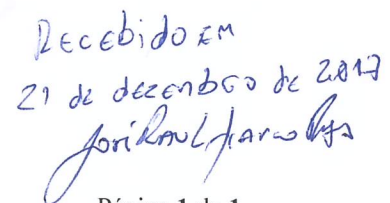 Recebido em
21 de dezembro de 2017
José Raul
Página 1 de 1